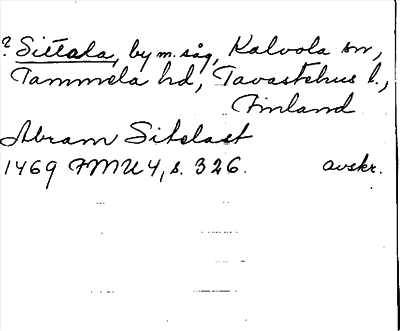 ? Sittala, by m. såg, Kalvola sn,
Tammela hd, Tavastehus l.,
Finland
Abram Sitelast
1469 FMU 4, s. 326. avskr.